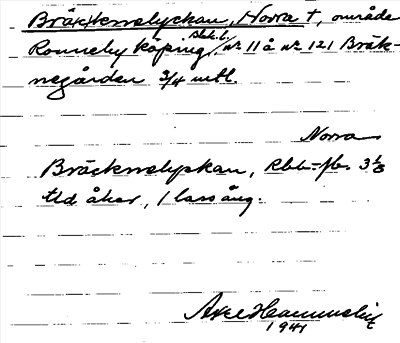 Bräknelyckan, Norra †, område
Ronneby köping, nr 11 å nr 121 Bräk-
negården 3/4 mtl.
Norra
Bräcknelyckan, Rbb.=fb. 3 1/8
tld åker, 1 lass äng.
Axel
1941